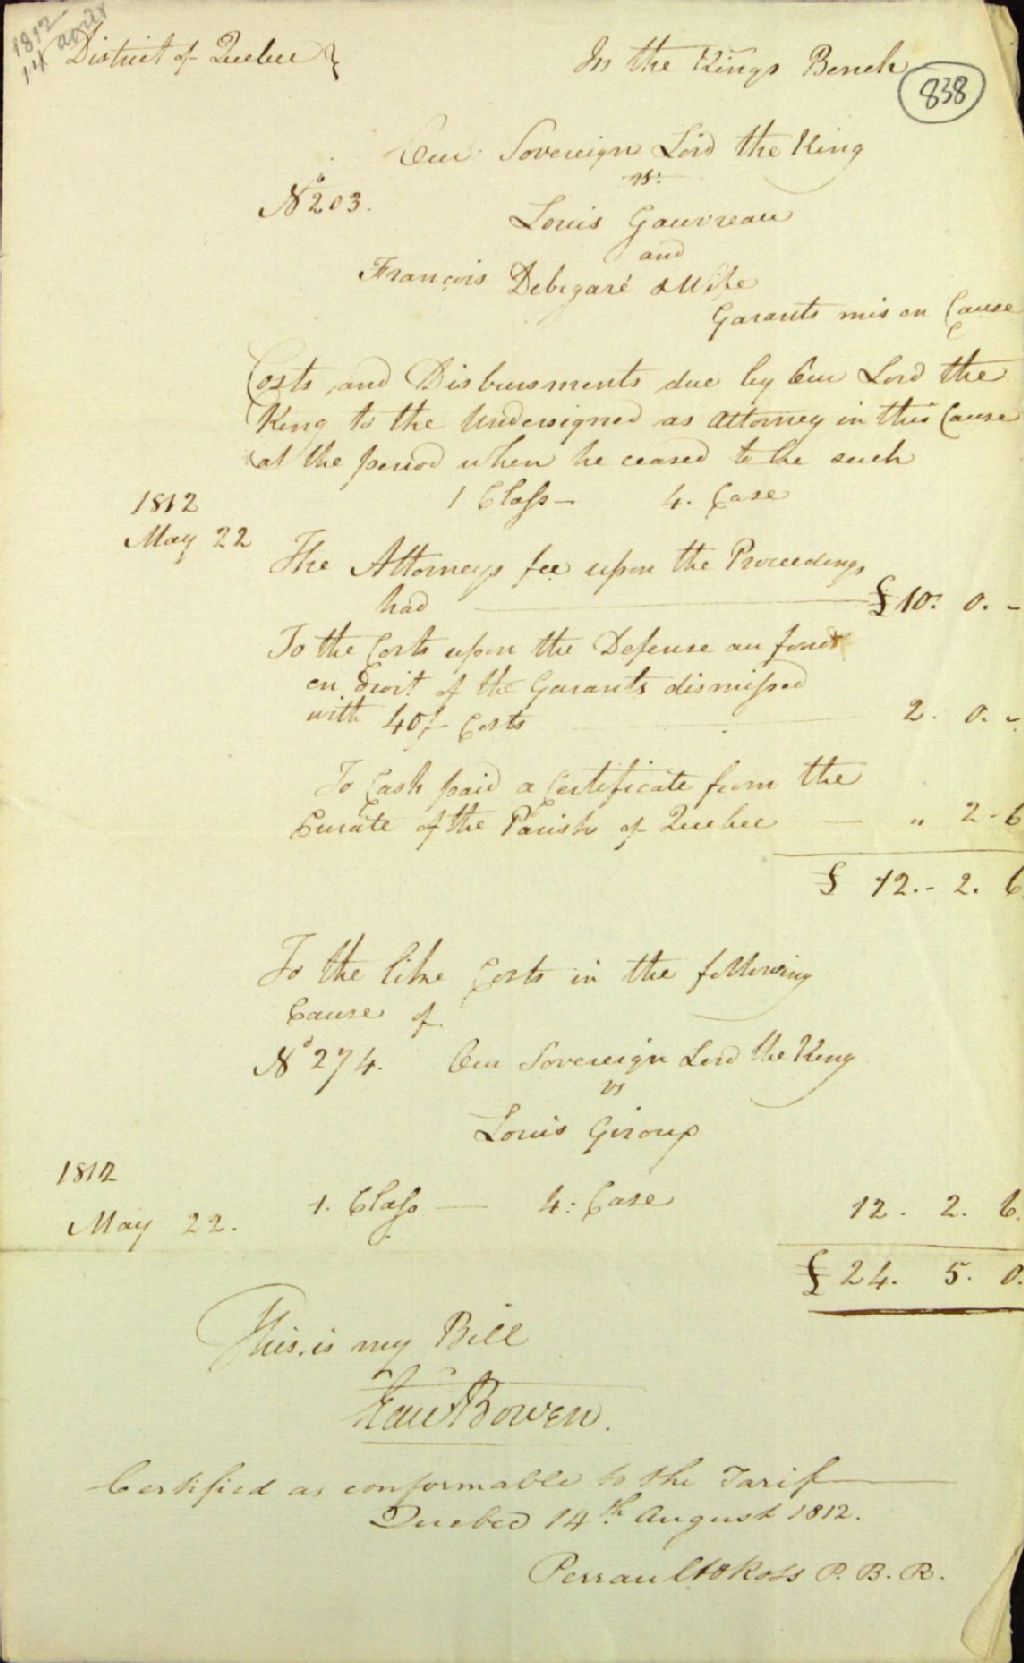 1812
14 août
District of Quebec }
In the Kings Bench
838
Our Sovereign Lord the King
vs.
No 203.
Louis Gauvreau
and
François Debigaré & Uxe
Garants mis en Cause
Costs and Disbursments due by Our Lord the
King to the Undersigned as Attorney in this Cause
at the period when he ceased to be such
1 Class — 4. Case
1812
May 22
The Attorneys fee upon the Proceedings
had £10. 0. -
To the Costs upon the Defense au fonds
en droit of the Garants dismissed
with 40/- Costs 2. 0. -
To Cash paid a Certificate from the
Curate of the Parish of Quebec — " 2-6
£ 12.- 2. 6
To the like Costs in the following
Cause of
No 274. Our Sovereign Lord the King
vs
Louis Giroux
1812
May 22.
1. Class — 4: Case 12. 2. 6.
£ 24. 5. 0.
This is my Bill
Edw Bowen.
Certified as conformable to the Tarif
Quebec 14th August 1812.
Perrault & Ross P. B. R.